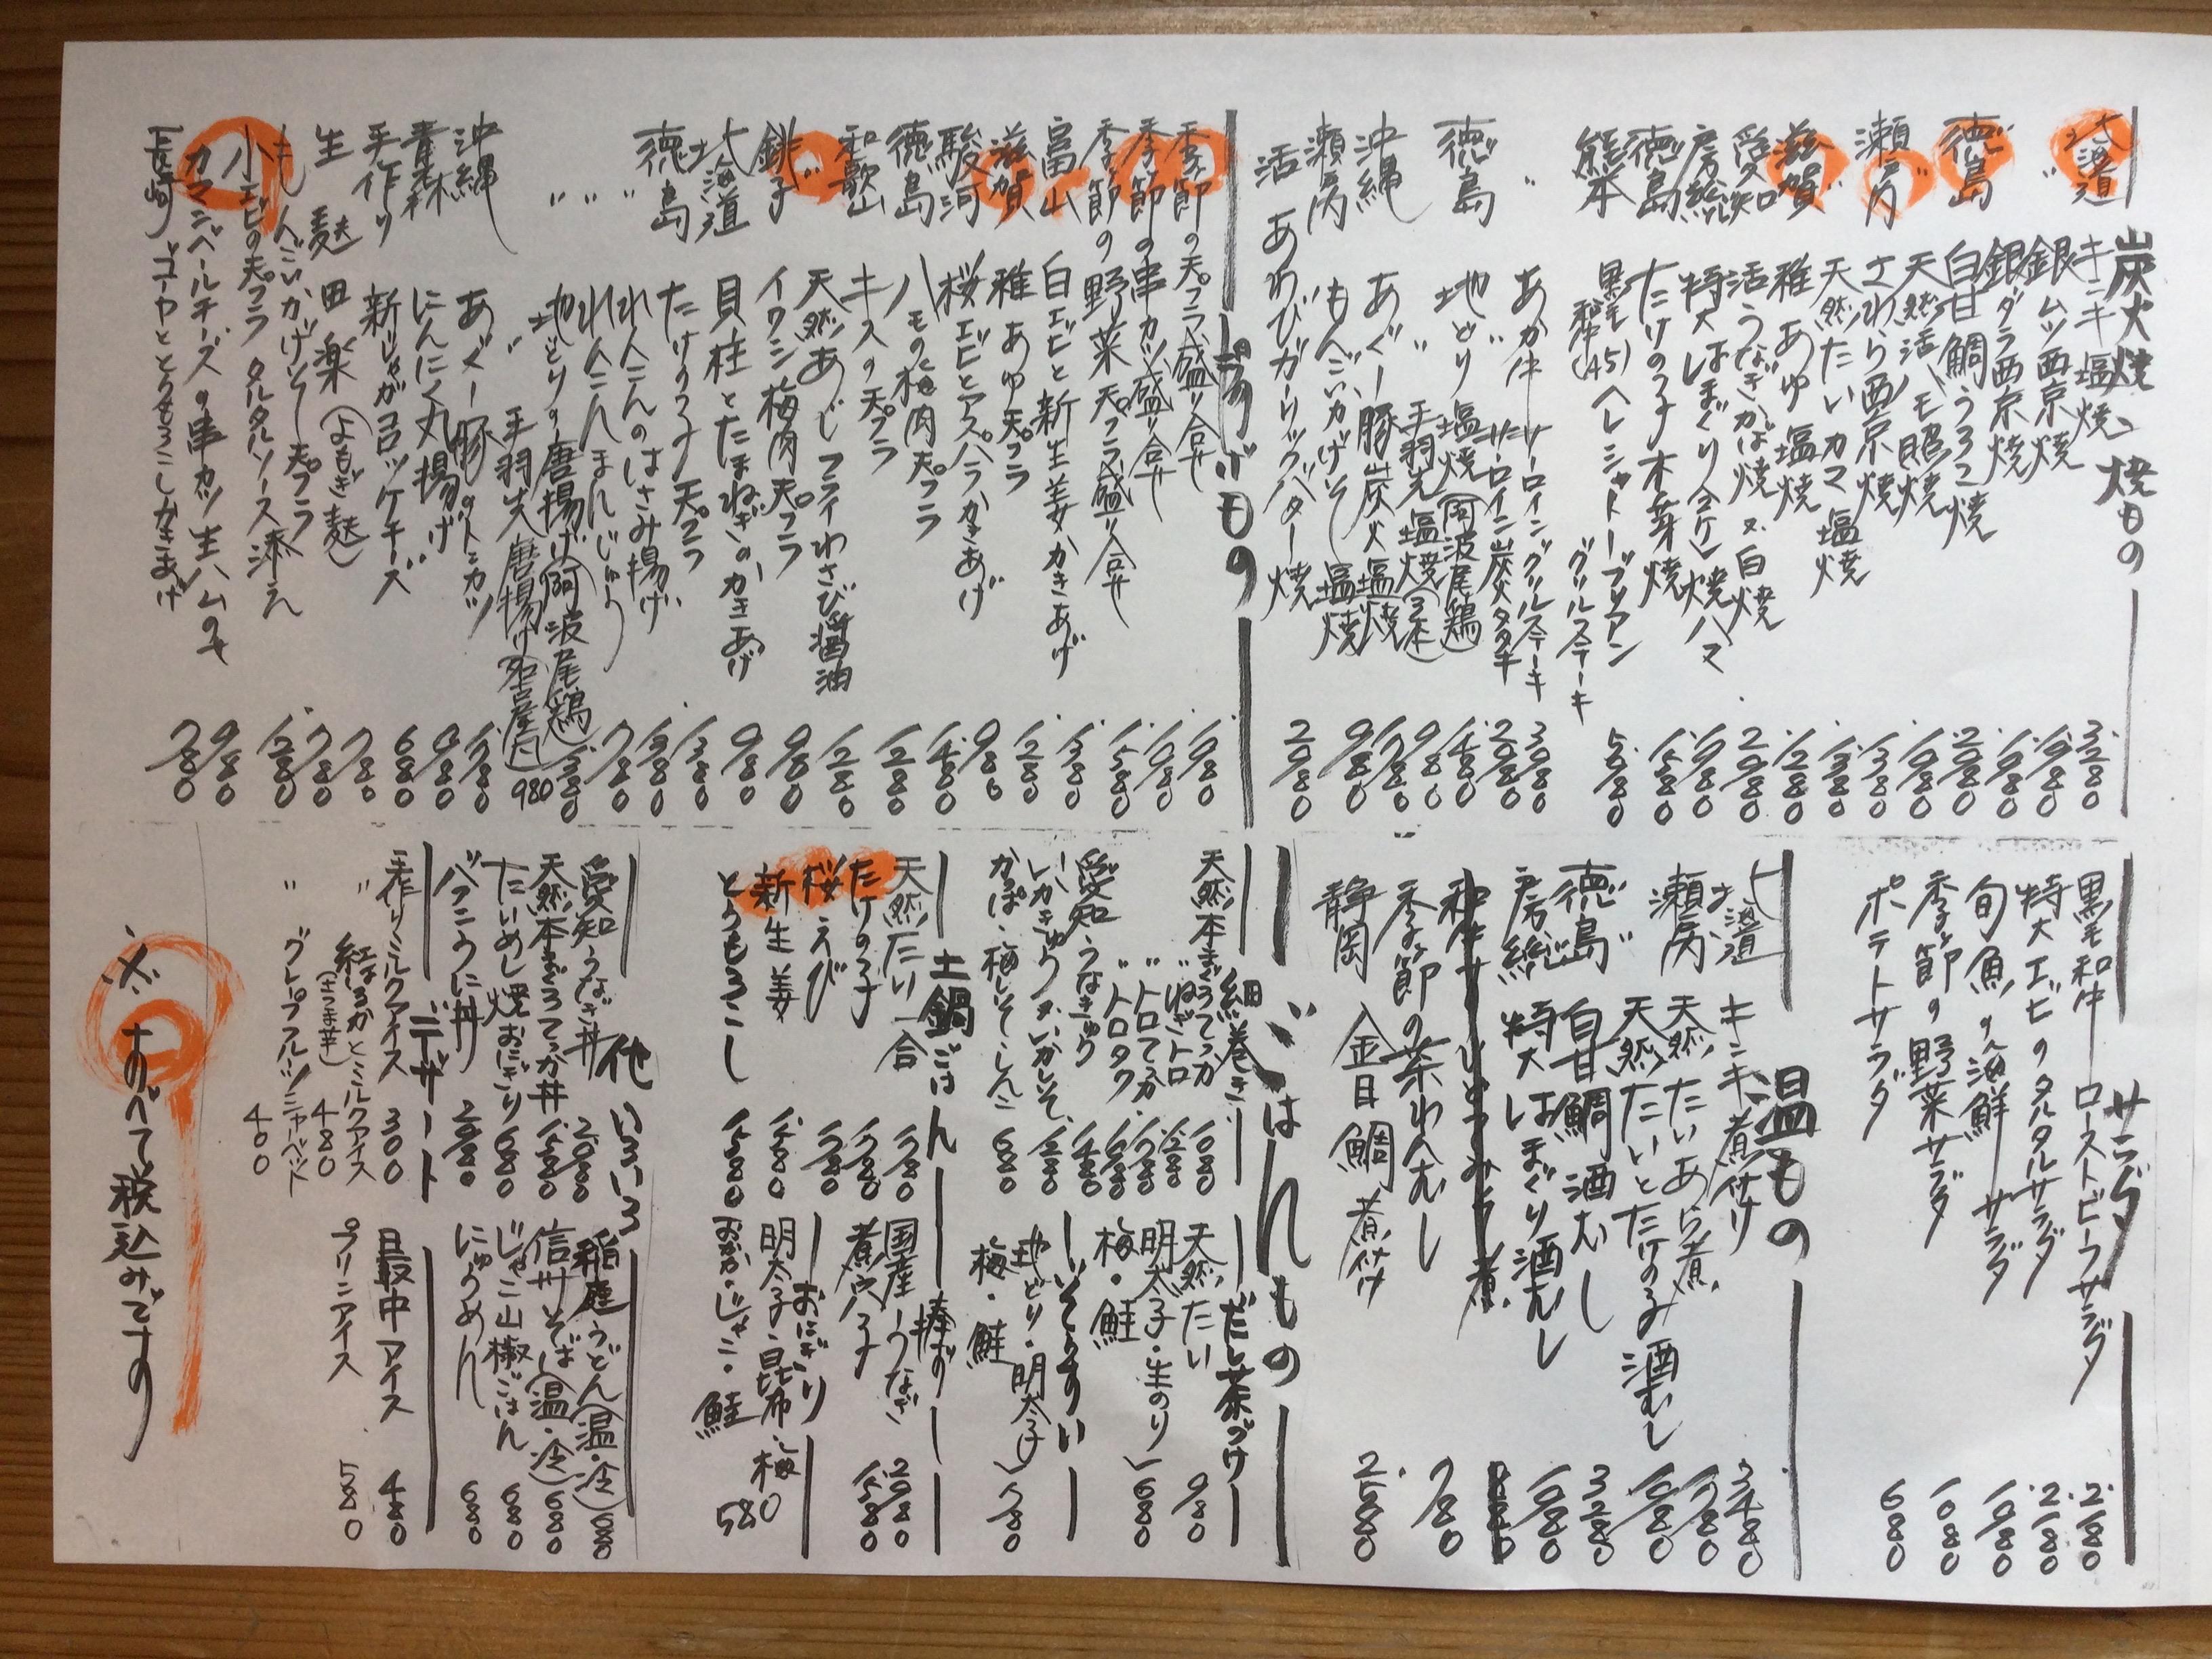 炭火焼、焼もの
北海道 キンキ塩焼 3280
〃 銀ムツ西京焼 1980
銀ダラ西京焼 1980
徳島 白甘鯛うろこ焼 2980
天然活ハモ照焼 1980
瀬戸内 さわら西京焼 1380
〃 天然たいカマ塩焼 1380
滋賀 稚あゆ塩焼 1280
愛知 活うなぎかば焼 又 白焼 2980
房総 特大はまぐり(2ケ)焼ハマ 1980
徳島 たけの子木の芽焼 1580
熊本 黒毛和牛(A5)ヘレシャトーブリアン グリルステーキ 5980
〃 あか牛 サーロイングリルステーキ 3980
〃 サーロイン炭火タタキ 2980
徳島 地どり塩焼(阿波尾鶏) 1480
〃 手羽先塩焼(3本) 980
沖縄 あぐー豚炭火塩焼 1780
瀬戸内 もんごいかげそ塩焼 980
活 あわびガーリックバター焼 2980
揚げもの
季節の天プラ盛り合せ 1980
季節の串カツ盛り合せ 1980
季節の野菜天プラ盛り合せ 1580
富山 白エビと新生姜かきあげ 1380
滋賀 稚あゆ天プラ 1280
駿河 桜エビとアスパラかきあげ 980
徳島 ハモの梅肉天プラ 1480
和歌山 キスの天プラ 1280
〃 天然あじフライわさび醤油 1280
銚子 イワシ梅肉天プラ 980
北海道 貝柱とたまねぎのかきあげ 980
徳島 たけの子天プラ 1380
〃 れんこんのはさみ揚げ 1380
〃 れんこんまんじゅう 780
〃 地どりの唐揚げ(阿波尾鶏) 1380
〃 手羽先唐揚げ(名古屋風) 980
沖縄 あぐー豚のトンカツ 1780
青森 にんにく丸揚げ 980
手作り 新じゃがコロッケチーズ 680
生麩田楽(よもぎ麩) 780
もんごいかげそ天プラ 780
小エビの天プラ タルタルソース添え 1280
カマンベールチーズの串カツ 生ハムのせ 980
長崎 ゴーヤととうもろこしかきあげ 780
サラダ
黒毛和牛ローストビーフサラダ 2180
特大エビのタルタルサラダ 2180
旬魚の海鮮サラダ 1980
季節の野菜サラダ 1080
ポテトサラダ 680
温もの
北海道 キンキ煮付け 3480
瀬戸内 天然たいあら煮 1780
〃 天然たいとたけの子酒むし 1980
徳島 白甘鯛酒むし 3280
房総 特大はまぐり酒むし 1980
季節の茶わんむし 780
静岡 金目鯛煮付け 2580
ごはんもの
細巻き
天然本まぐろてっか 1080
〃 ねぎトロ 1280
〃 トロてっか 1780
〃 トロタク 1680
愛知 うなきゅう 1480
いかきゅう 又 いかしそ 1280
かっぱ・梅しそ・しんこ 680
だし茶づけ
天然たい 980
明太子・生のり
梅・鮭 680
ぞうすい
地どり・明太子
梅・鮭 580
土鍋ごはん
天然たい 一合 1780
たけの子 1780
桜えび 1780
新生姜 1580
とうもろこし 1580
棒ずし
国産うなぎ 2980
煮穴子 1580
おにぎり
明太子・昆布・梅
おかか・じゃこ・鮭 580
他いろいろ
愛知うなぎ丼 2980
天然本まぐろてっか丼 1580
たいめし焼おにぎり 680
バフンうに丼 2980
稲庭うどん(温・冷) 680
信州そば(温・冷) 680
じゃこ山椒ごはん 680
にゅうめん 680
デザート
手作りミルクアイス 300
〃 紅はるかとミルクアイス(さつま芋) 480
〃 グレープフルーツシャーベット 400
最中アイス 480
プリンアイス 580
※すべて税込みです